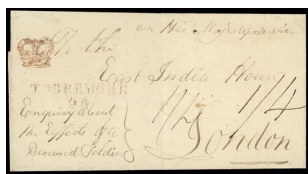 on His Majestys Service
To the
East India House
TOBERMORE
1/4
London
Enquiry about
the Effects of a
Deceased Soldier